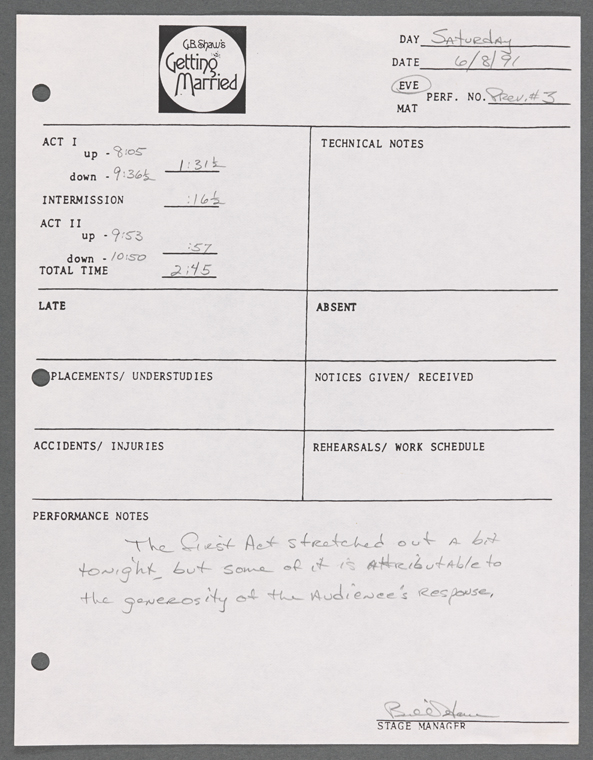 G.B. Shaw's
Getting
Married
DAY Saturday
DATE 6/8/91
EVE
MAT
PERF. NO. Prev. #3
ACT I
up - 8:05
down - 9:36½ 1:31½
INTERMISSION :16½
ACT II
up - 9:53
:57
down - 10:50
TOTAL TIME 2:45
TECHNICAL NOTES
LATE
ABSENT
PLACEMENTS/ UNDERSTUDIES
NOTICES GIVEN/ RECEIVED
ACCIDENTS/ INJURIES
REHEARSALS/ WORK SCHEDULE
PERFORMANCE NOTES
The first Act stretched out a bit
tonight, but some of it is attributable to
the generosity of the audience's response.
STAGE MANAGER